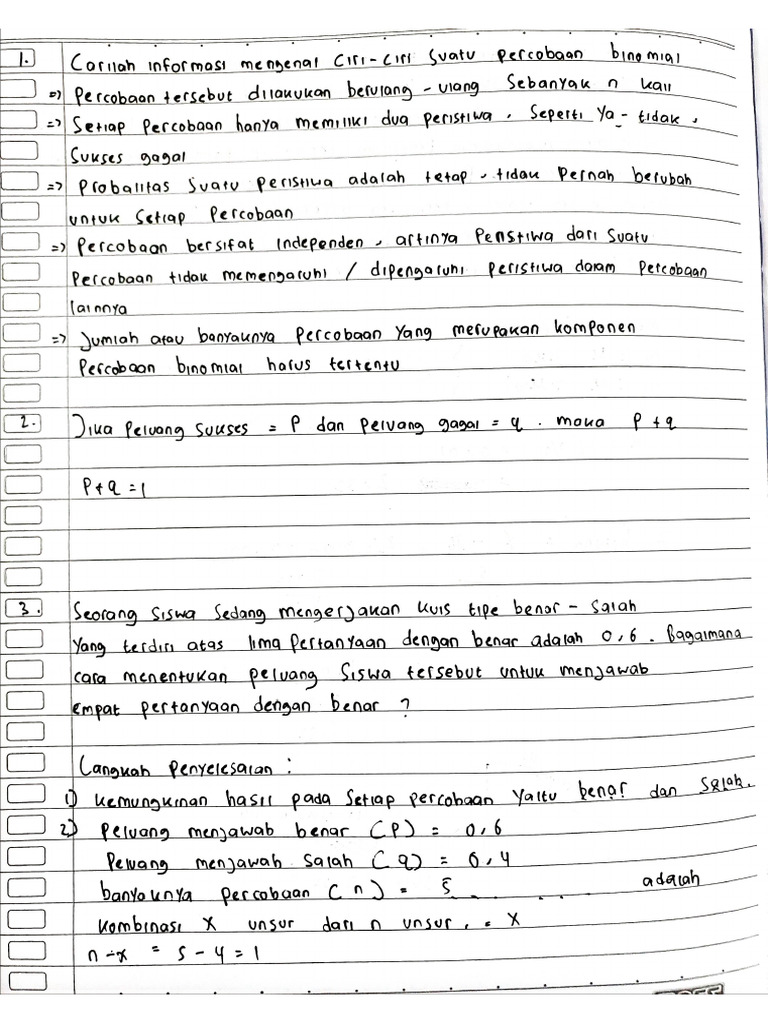 1. Carilah informasi mengenai ciri-ciri suatu percobaan binomial
=> Percobaan tersebut dilakukan berulang-ulang sebanyak n kali
=> Setiap percobaan hanya memiliki dua peristiwa, seperti ya-tidak,
sukses gagal
=> Probalitas suatu peristiwa adalah tetap, tidak pernah berubah
untuk setiap percobaan
=> Percobaan bersifat independen, artinya peristiwa dari suatu
percobaan tidak memengaruhi / dipengaruhi peristiwa dalam percobaan
lainnya
=> Jumlah atau banyaknya percobaan yang merupakan komponen
percobaan binomial harus tertentu
2. Jika peluang sukses = P dan peluang gagal = q. maka P+q
P+q=1
3. Seorang siswa sedang mengerjakan kuis tipe benar - salah
yang terdiri atas lima pertanyaan dengan benar adalah 0,6. Bagaimana
cara menentukan peluang siswa tersebut untuk menjawab
empat pertanyaan dengan benar ?
Langkah penyelesaian :
1) Kemungkinan hasil pada setiap percobaan yaitu benar dan salah.
2) Peluang menjawab benar (P) = 0,6
Peluang menjawab salah (q) = 0,4
banyaknya percobaan (n) = 5 adalah
kombinasi x unsur dari n unsur, = x
n-x = 5-4=1